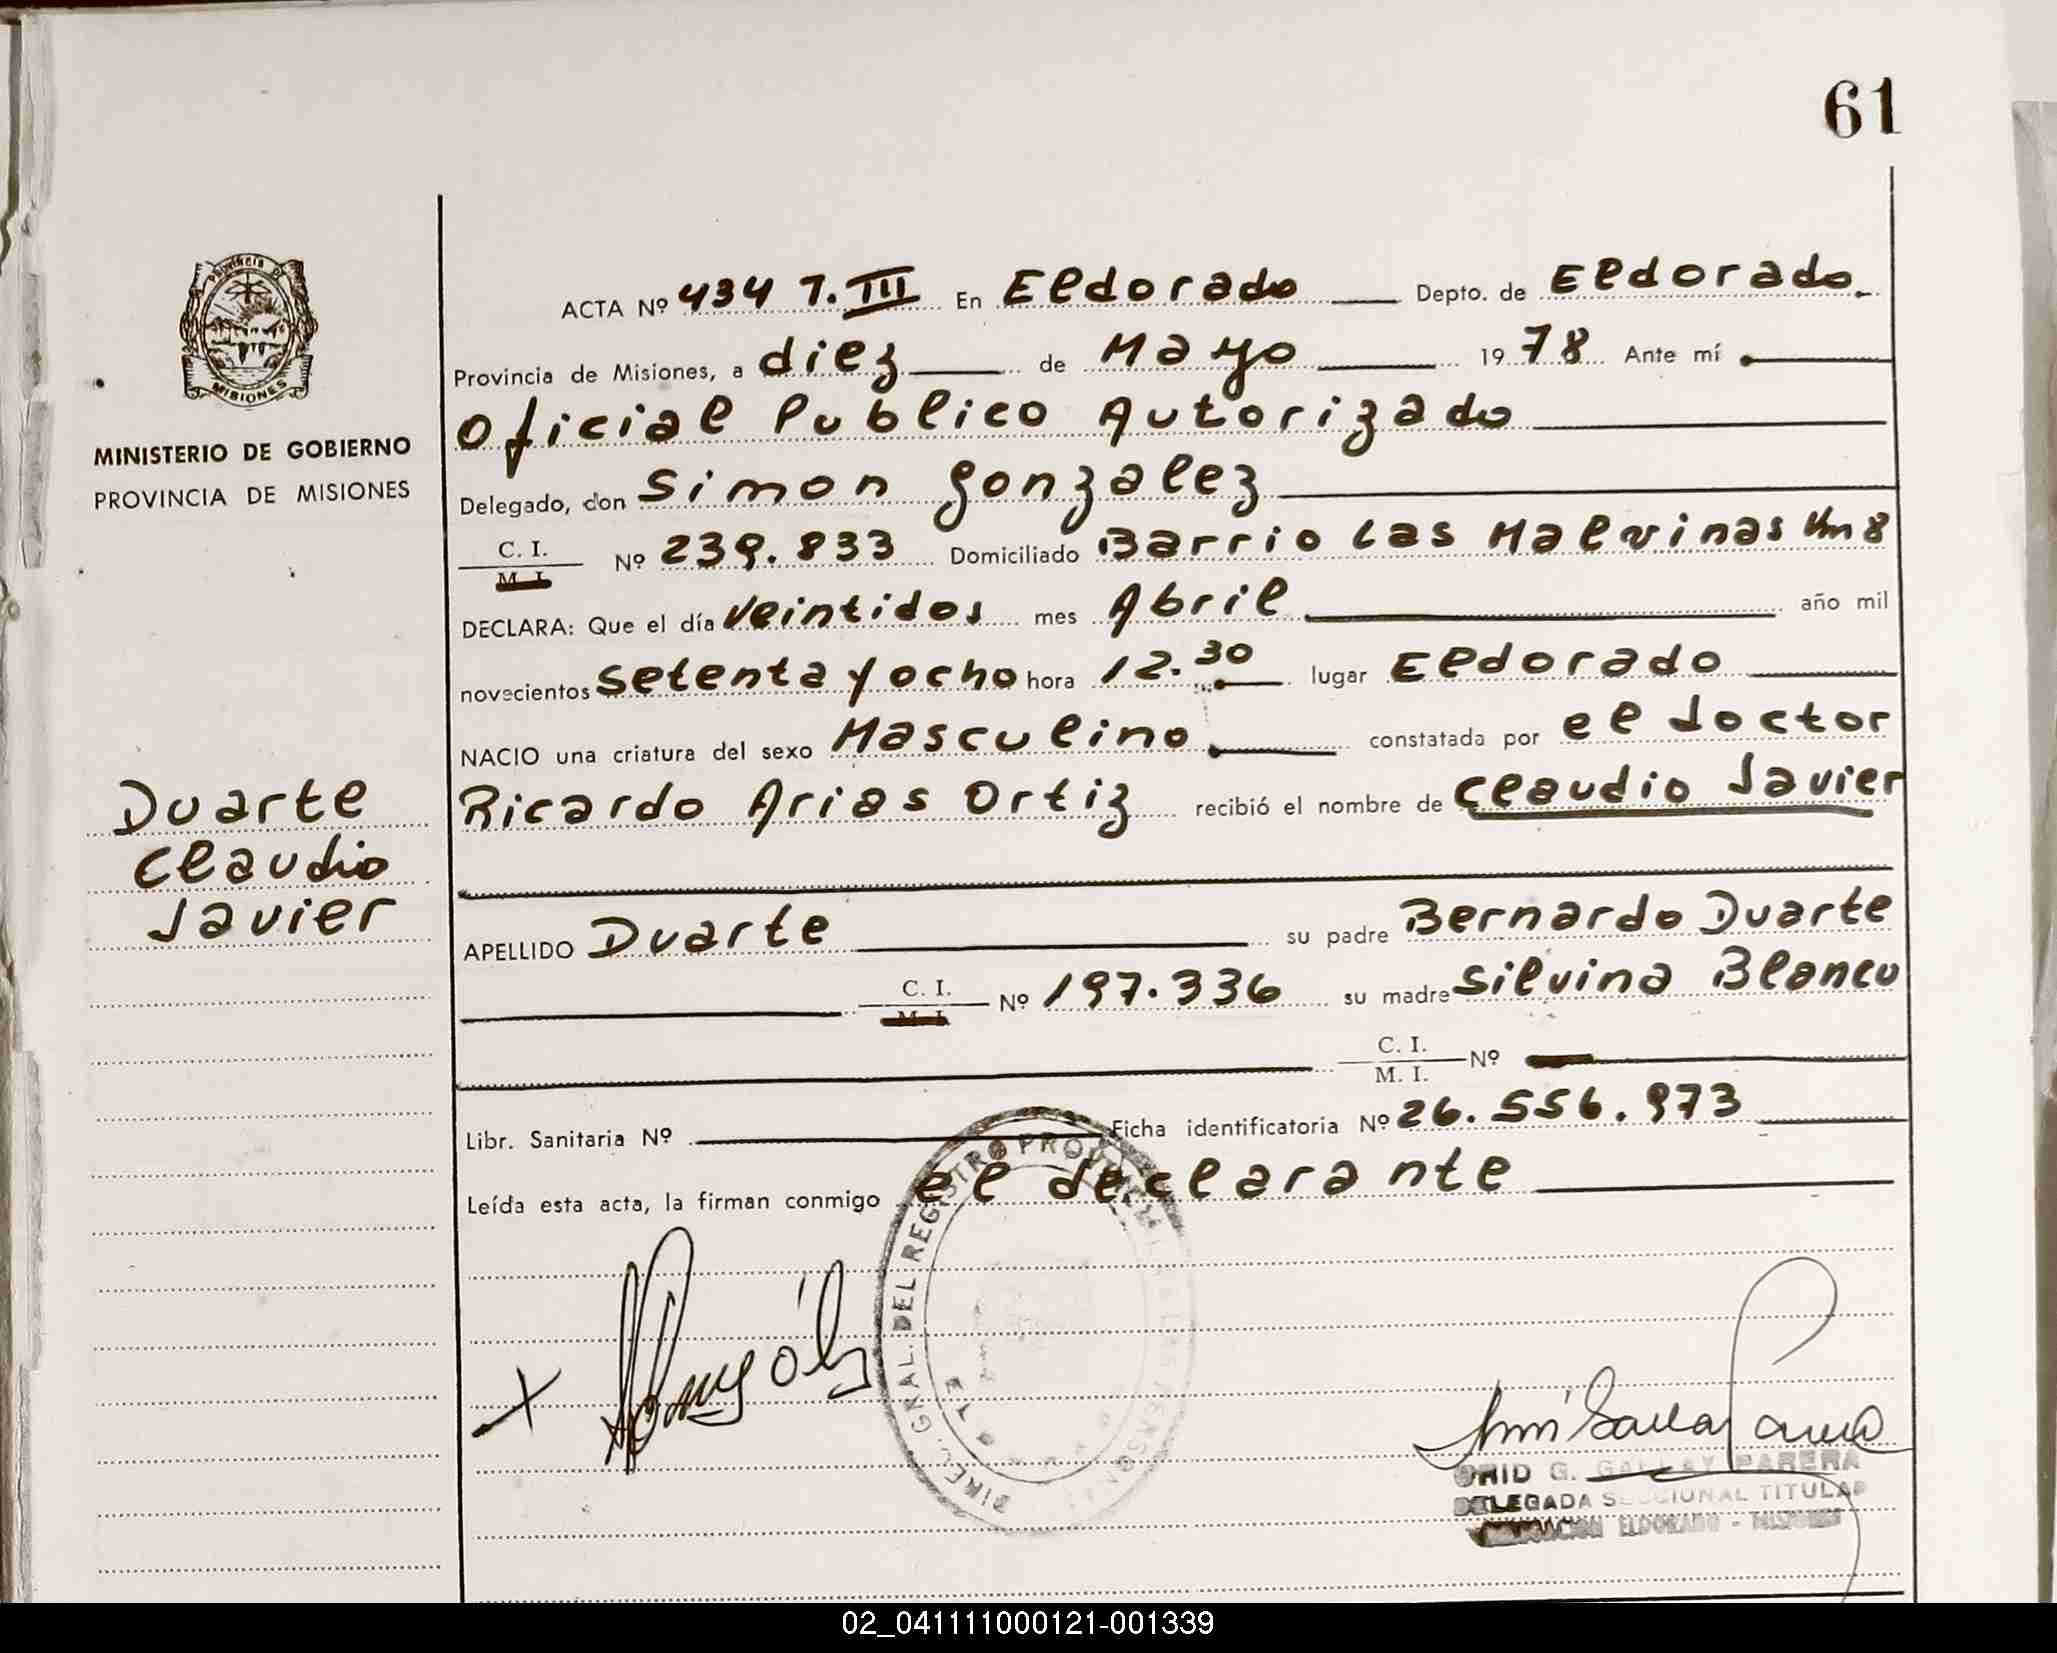 61
Provincia de
MISIONES
MINISTERIO DE GOBIERNO
PROVINCIA DE MISIONES
ACTA Nº 434 T. III En Eldorado Depto. de Eldorado
Provincia de Misiones, a diez de Mayo 1978 Ante mí
Oficial Publico Autorizado
Delegado, don Simon Gonzalez
C. I.
M. I. Nº 239.833 Domiciliado Barrio Las Malvinas Km 8
DECLARA: Que el día veintidos mes Abril año mil
novecientos setenta y ocho hora 12.30 lugar Eldorado
NACIO una criatura del sexo Masculino constatada por el doctor
Ricardo Arias Ortiz recibió el nombre de Claudio Javier
Duarte
Claudio
Javier
APELLIDO Duarte su padre Bernardo Duarte
C. I.
M. I. Nº 197.336 su madre Silvina Blanco
C. I.
M. I. Nº
Libr. Sanitaria Nº Ficha identificatoria Nº 26.556.973
Leída esta acta, la firman conmigo el declarante
DIREC. GRAL. DEL REGISTRO PROVINCIAL DE LAS PERSONAS
G. GALLAY PARERA
DELEGADA SECCIONAL TITULAR
ELDORADO - MISIONES
02_041111000121-001339